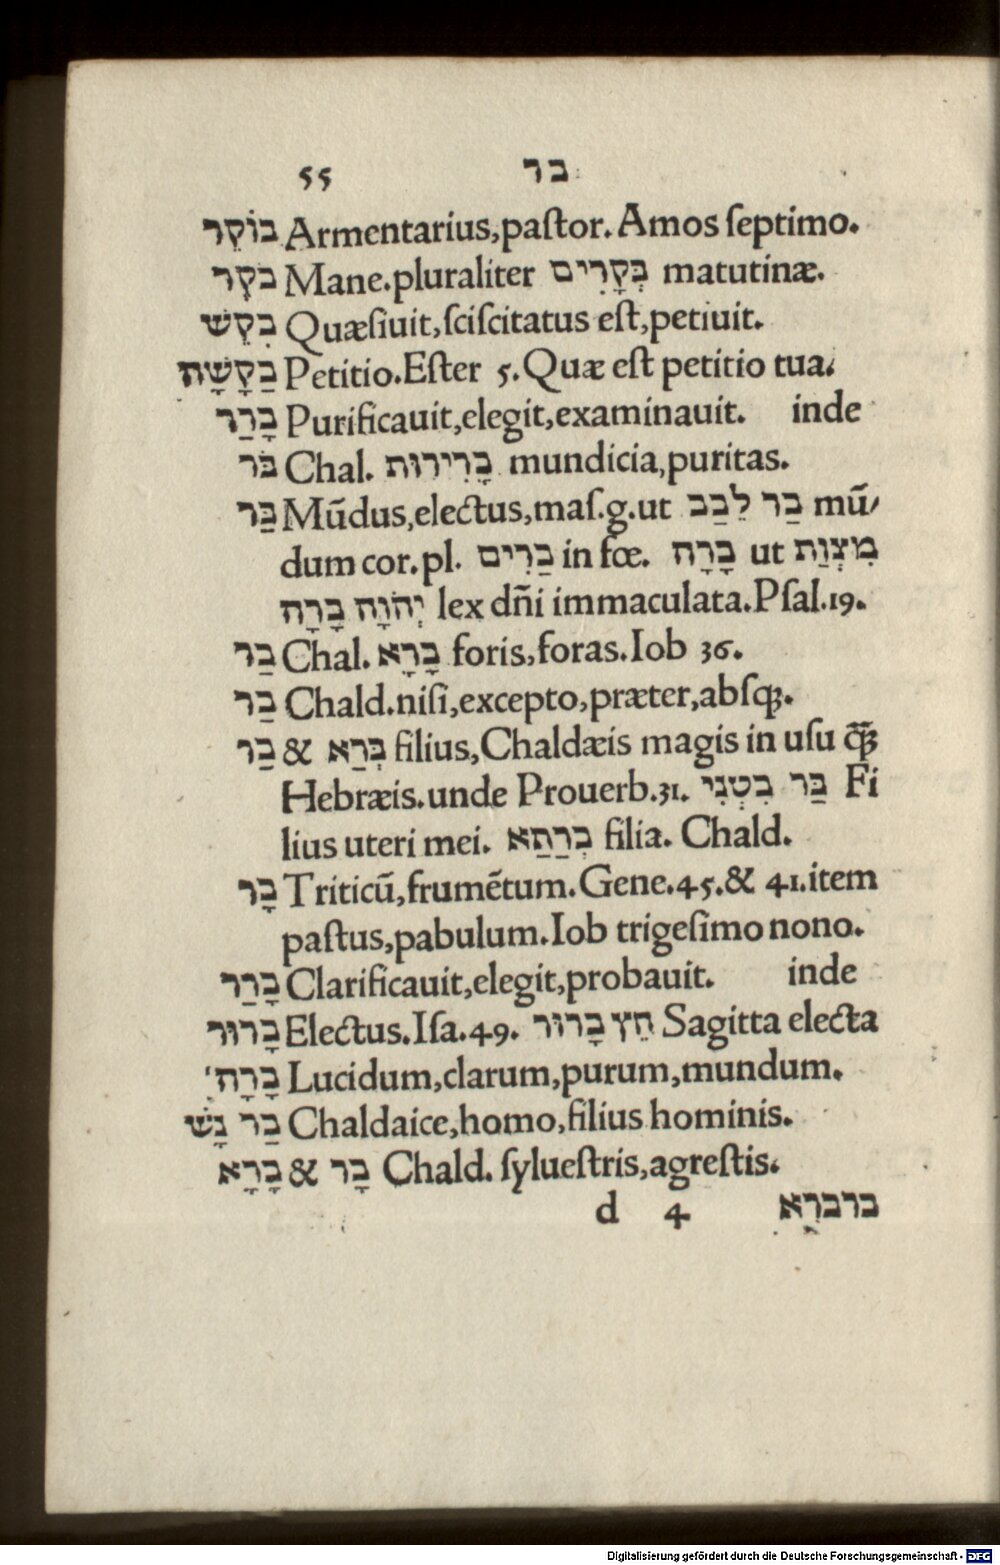 55 בר
בוֹקֵר Armentarius,paſtor. Amos ſeptimo.
בֹּקֶר Mane.pluraliter בְּקָרִים matutinæ.
בִּקֵּשׁ Quæſiuit,ſciſcitatus eſt,petiuit.
בַּקָּשָׁה Petitio.Eſter 5.Quæ eſt petitio tua.
בָּרַר Purificauit,elegit,examinauit. inde
בֹּר Chal. בָּרִירוּת mundicia,puritas.
בַּר Mūdus,electus,maſ.g.ut בַּר לֵבַב mū/
dum cor.pl. בַּרִים in fœ. בָּרָה ut מִצְוַת
יְהֹוָה בָּרָה lex dñi immaculata.Pſal.19.
בַּר Chal. בָּרָא foris,foras.Iob 36.
בַּר Chald.niſi,excepto,præter,abſqꝫ.
בַּר & בְּרַא filius,Chaldæis magis in uſu q̄ꝫ
Hebræis.unde Prouerb.31. בַּר בִּטְנִי Fi
lius uteri mei. בְּרַתַא filia. Chald.
בָּר Triticū,frumētum.Gene.45.& 41.item
paſtus,pabulum.Iob trigeſimo nono.
בָּרַר Clarificauit,elegit,probauit. inde
בָּרוּר Electus.Iſa.49. חֵץ בָּרוּר Sagitta electa
בָּרָה Lucidum,clarum,purum,mundum.
בַּר נָשׁ Chaldaice,homo,filius hominis.
בָּרָא & בָּר Chald. ſylueſtris,agreſtis.
d 4 ברברא
Digitalisierung gefördert durch die Deutsche Forschungsgemeinschaft - DFG